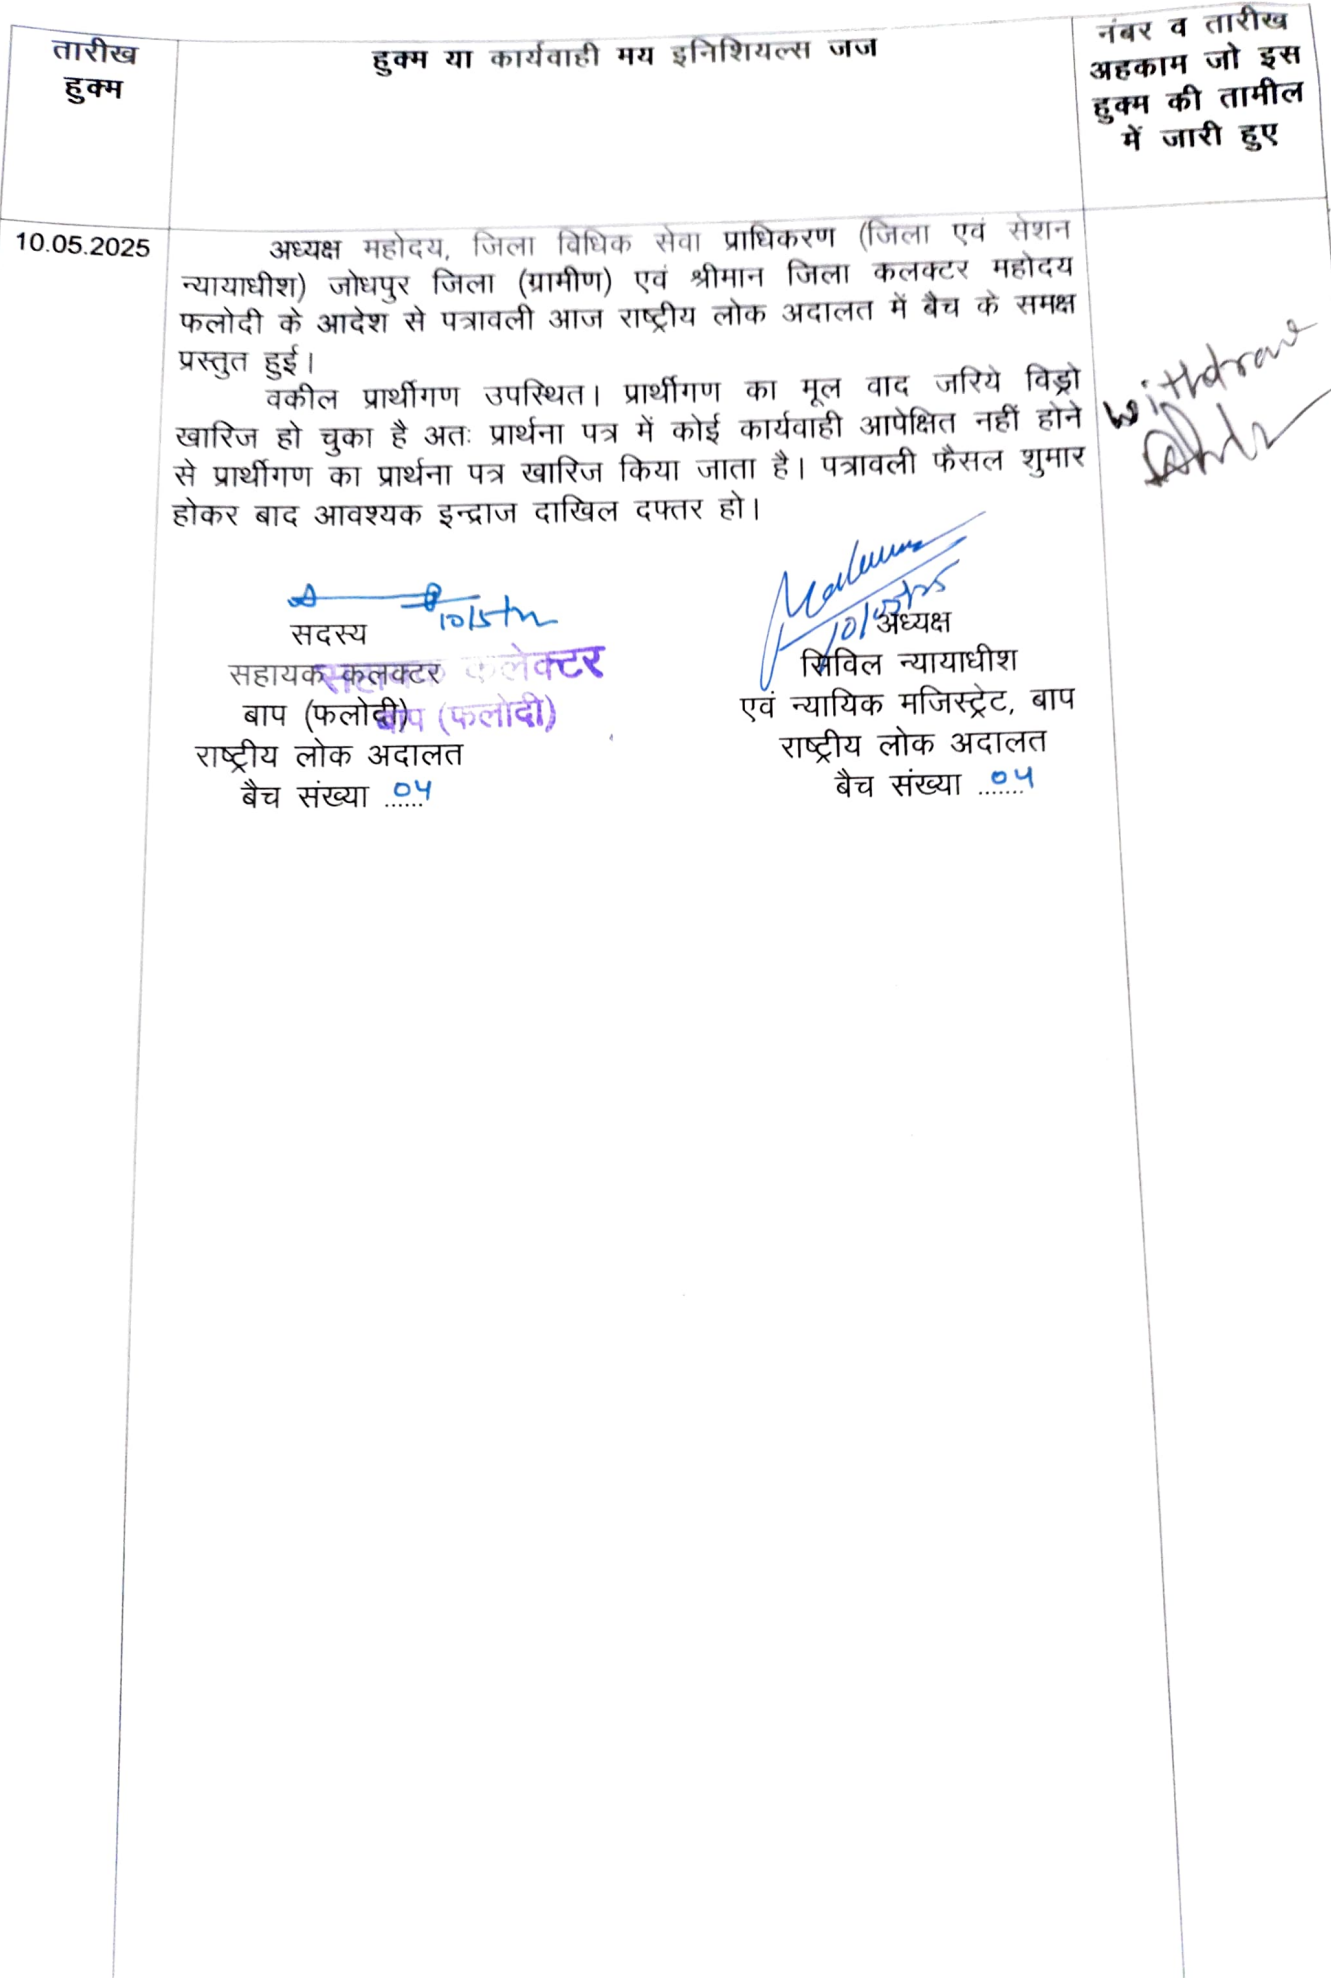 तारीख
हुक्म
हुक्म या कार्यवाही मय इनिशियल्स जज
नंबर व तारीख
अहकाम जो इस
हुक्म की तामील
में जारी हुए
10.05.2025
अध्यक्ष महोदय, जिला विधिक सेवा प्राधिकरण (जिला एवं सेशन
न्यायाधीश) जोधपुर जिला (ग्रामीण) एवं श्रीमान जिला कलक्टर महोदय
फलोदी के आदेश से पत्रावली आज राष्ट्रीय लोक अदालत में बैच के समक्ष
प्रस्तुत हुई।
वकील प्रार्थीगण उपस्थित। प्रार्थीगण का मूल वाद जरिये विड्रो
खारिज हो चुका है अतः प्रार्थना पत्र में कोई कार्यवाही आपेक्षित नहीं होने
से प्रार्थीगण का प्रार्थना पत्र खारिज किया जाता है। पत्रावली फैसल शुमार
होकर बाद आवश्यक इन्द्राज दाखिल दफ्तर हो।
withdrawe
सदस्य
सहायक कलक्टर
बाप (फलोदी)
राष्ट्रीय लोक अदालत
बैच संख्या ......04
सहायक कलेक्टर
बाप (फलोदी)
10/05/25
अध्यक्ष
सिविल न्यायाधीश
एवं न्यायिक मजिस्ट्रेट, बाप
राष्ट्रीय लोक अदालत
बैच संख्या .......04